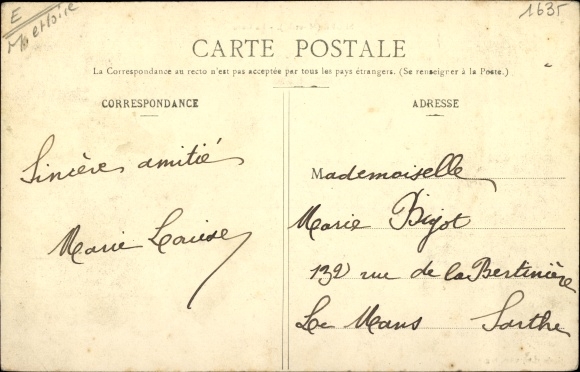 E
M et Loire
1635
CARTE POSTALE
La Correspondance au recto n'est pas acceptée par tous les pays étrangers. (Se renseigner à la Poste.)
CORRESPONDANCE
Sincère amitié
Marie Louise
ADRESSE
Mademoiselle
Marie Bigot
132 rue de la Bertinière
Le Mans Sarthe